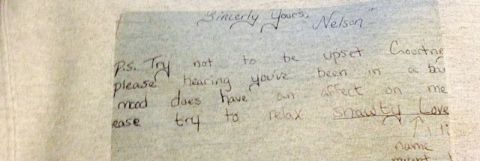 Sincerly Yours,
Nelson
P.s. Try not to be upset Courtney
please hearing you've been in a ba
mood does have an affect on me
ease try to relax snawty Love
name